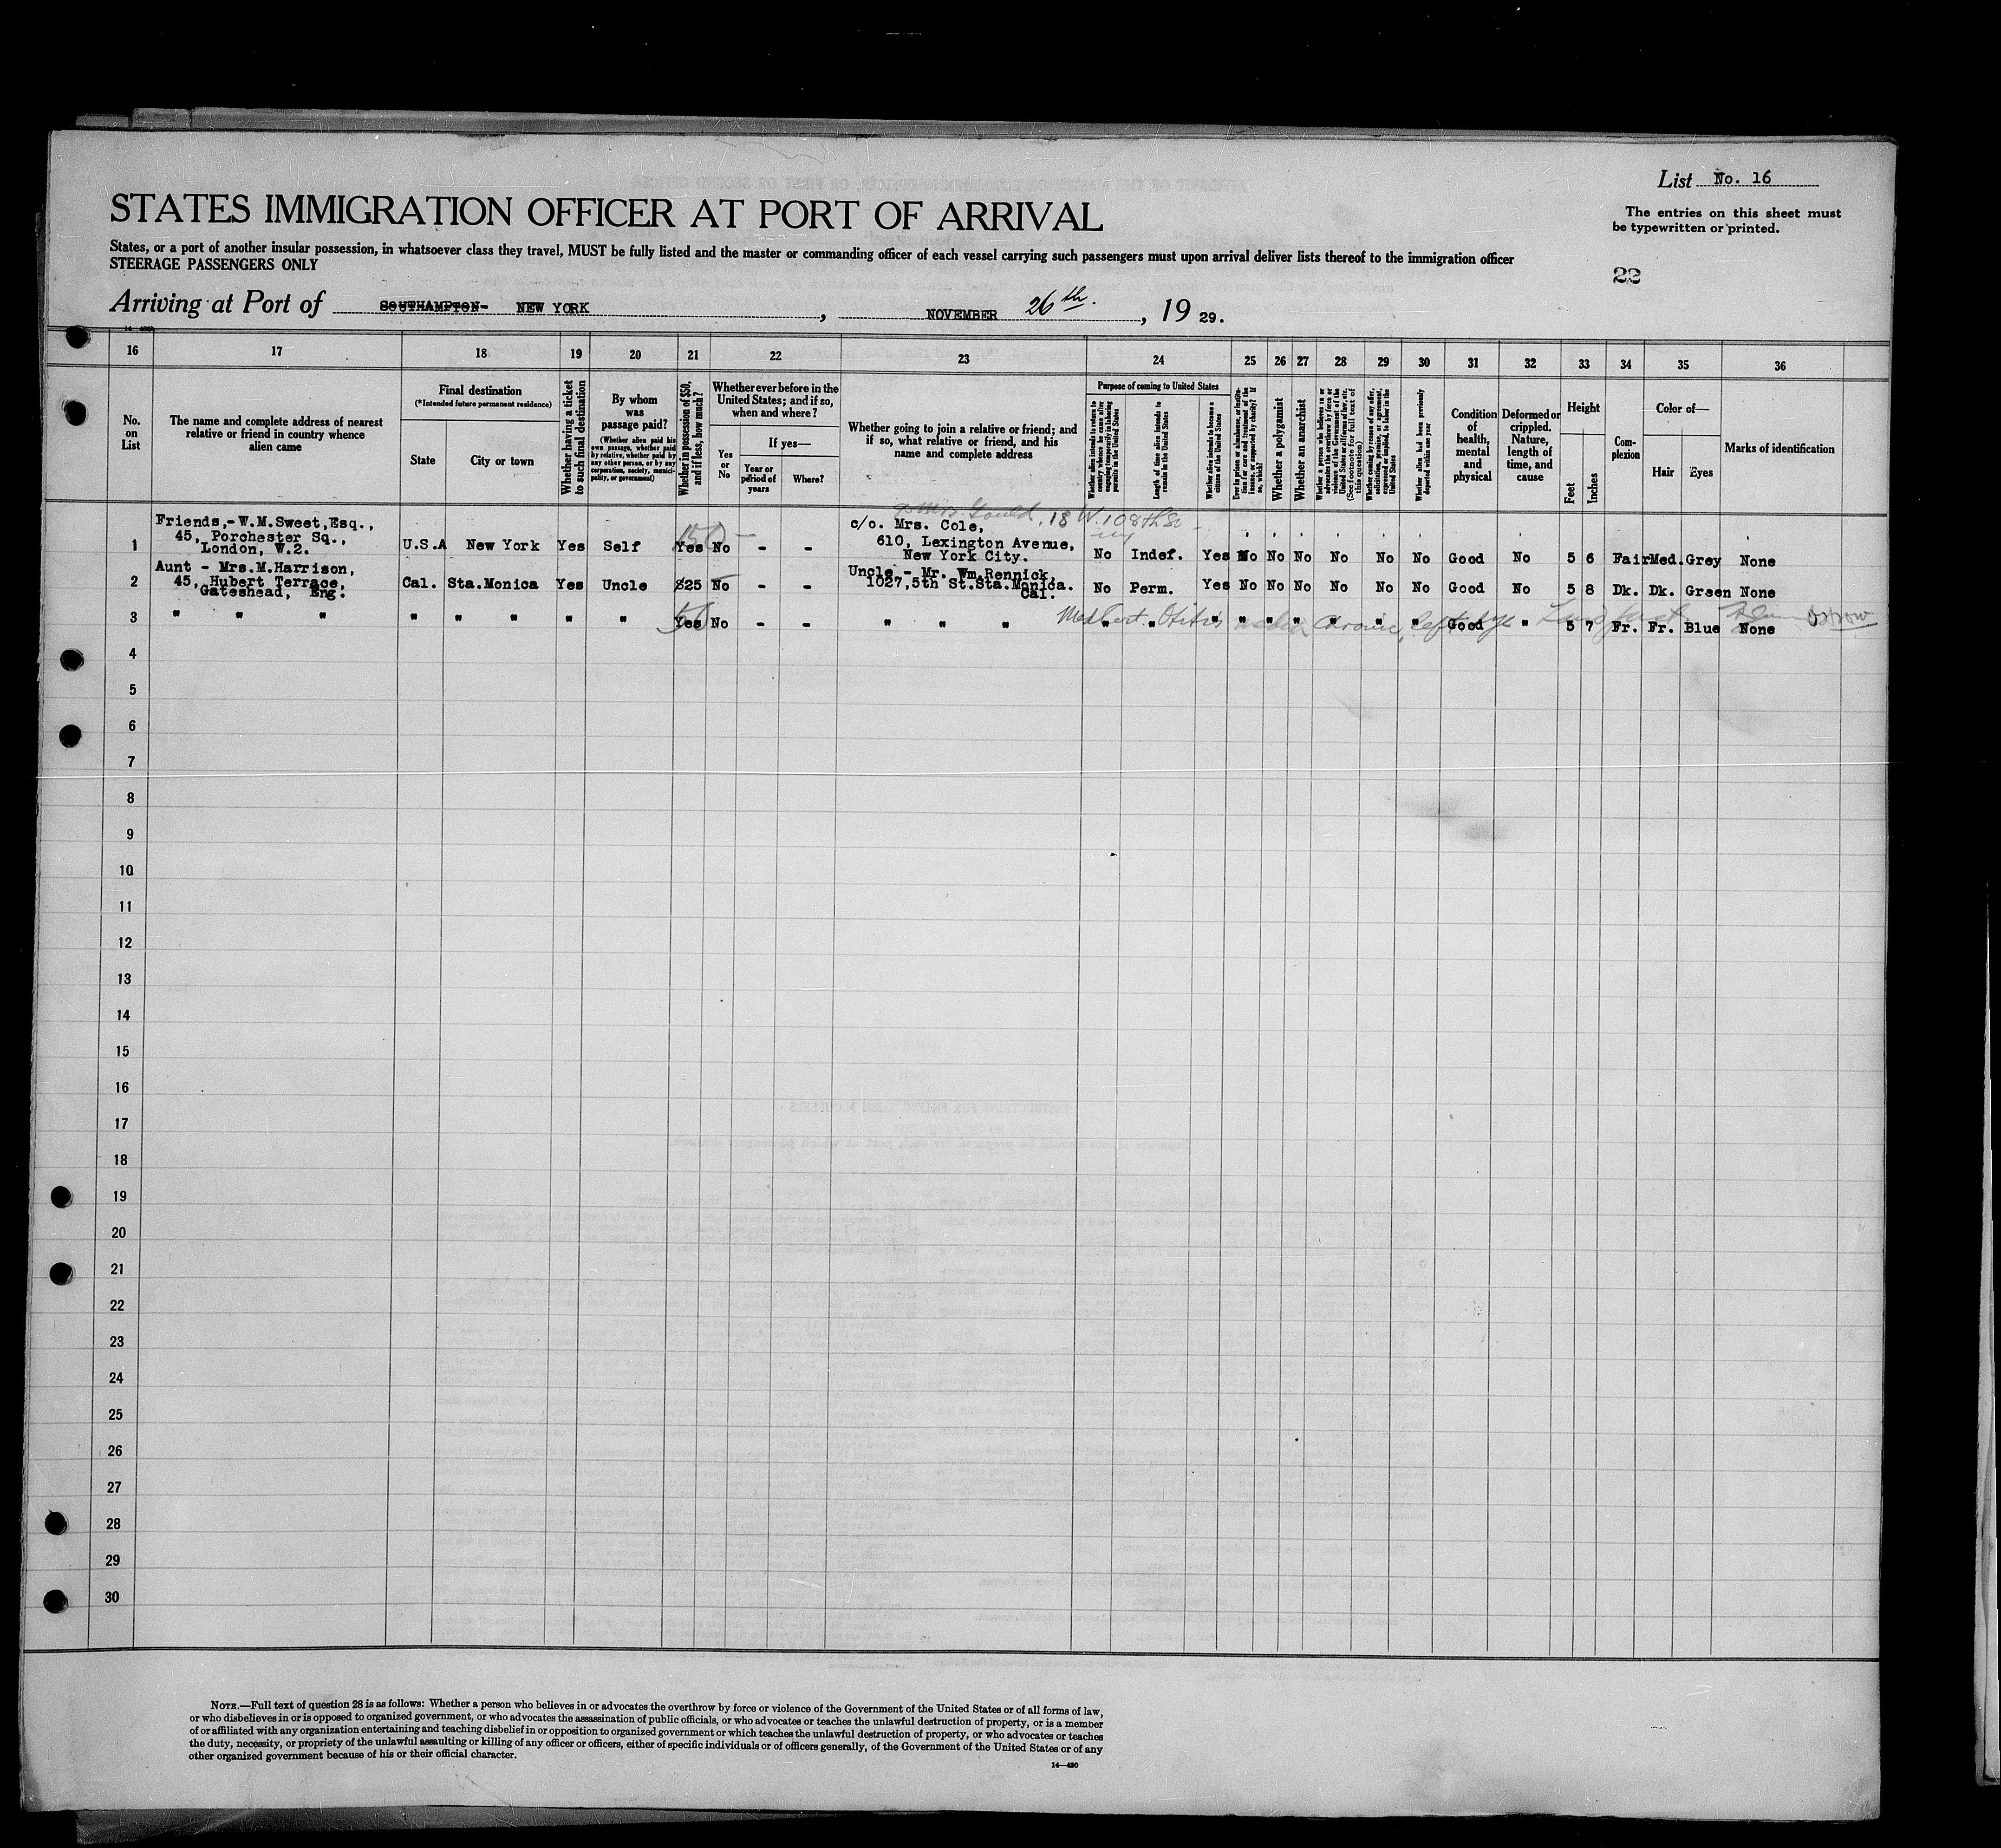 List No. 16
STATES IMMIGRATION OFFICER AT PORT OF ARRIVAL
The entries on this sheet must
be typewritten or printed.
States, or a port of another insular possession, in whatsoever class they travel, MUST be fully listed and the master or commanding officer of each vessel carrying such passengers must upon arrival deliver lists thereof to the immigration officer
STEERAGE PASSENGERS ONLY
22
Arriving at Port of SOUTHAMPTON- NEW YORK, NOVEMBER 26th., 19 29.
16 17 18 19 20 21 22 23 24 25 26 27 28 29 30 31 32 33 34 35 36
No.
on
List
The name and complete address of nearest
relative or friend in country whence
alien came
Final destination
(*Intended future permanent residence)
State
City or town
Whether having a ticket
to such final destination
By whom
was
passage paid?
(Whether alien paid his
own passage, whether paid
by relative, whether paid by
any other person, or by any
corporation, society, munici-
pality, or government)
Whether in possession of $50,
and if less, how much?
Whether ever before in the
United States; and if so,
when and where?
Yes
or
No
If yes—
Year or
period of
years
Where?
Whether going to join a relative or friend; and
if so, what relative or friend, and his
name and complete address
Purpose of coming to United States
Whether alien intends to return to
country whence he came after
engaging temporarily in laboring
pursuits in the United States
Length of time alien intends to
remain in the United States
Whether alien intends to become a
citizen of the United States
Ever in prison or almshouse, or institu-
tion for care and treatment of the
insane, or supported by charity? If
so, which?
Whether a polygamist
Whether an anarchist
Whether a person who believes in or
advocates the overthrow by force or
violence of the Government of the
United States or all forms of law, etc.
(See footnote for full text of
this question)
Whether coming by reason of any offer,
solicitation, promise, or agreement,
expressed or implied, to labor in the
United States
Whether alien had been previously
deported within one year
Condition
of
health,
mental
and
physical
Deformed or
crippled.
Nature,
length of
time, and
cause
Height
Feet
Inches
Com-
plexion
Color of—
Hair
Eyes
Marks of identification
Mrs. Gould, 18 W. 108th St
1 Friends,-W.M.Sweet,Esq.,
45, Porchester Sq.,
London, W.2.
U.S.A New York Yes Self Yes 150 No - -
c/o. Mrs. Cole,
610, Lexington Avenue,
New York City.
No Indef. Yes No No No No No No Good No 5 6 Fair Med. Grey None
2 Aunt - Mrs.M.Harrison,
45, Hubert Terrace,
Gateshead, Eng.
Cal. Sta.Monica Yes Uncle $25 No - -
Uncle - Mr. Wm.Rennick,
1027,5th St.Sta.Monica.
Cal.
No Perm. Yes No No No No No No Good No 5 8 Dk. Dk. Green None
3 " " " " " " " " Yes 50 No - - " " " " " " " " " " " " Good " 5 7 Fr. Fr. Blue None
Med Cert. Otitis media chronic, left
4
5
6
7
8
9
10
11
12
13
14
15
16
17
18
19
20
21
22
23
24
25
26
27
28
29
30
NOTE.—Full text of question 28 is as follows: Whether a person who believes in or advocates the overthrow by force or violence of the Government of the United States or of all forms of law,
or who disbelieves in or is opposed to organized government, or who advocates the assassination of public officials, or who advocates or teaches the unlawful destruction of property, or is a member
of or affiliated with any organization entertaining and teaching disbelief in or opposition to organized government or which teaches the unlawful destruction of property, or who advocates or teaches
the duty, necessity, or propriety of the unlawful assaulting or killing of any officer or officers, either of specific individuals or of officers generally, of the Government of the United States or of any
other organized government because of his or their official character.
14—430